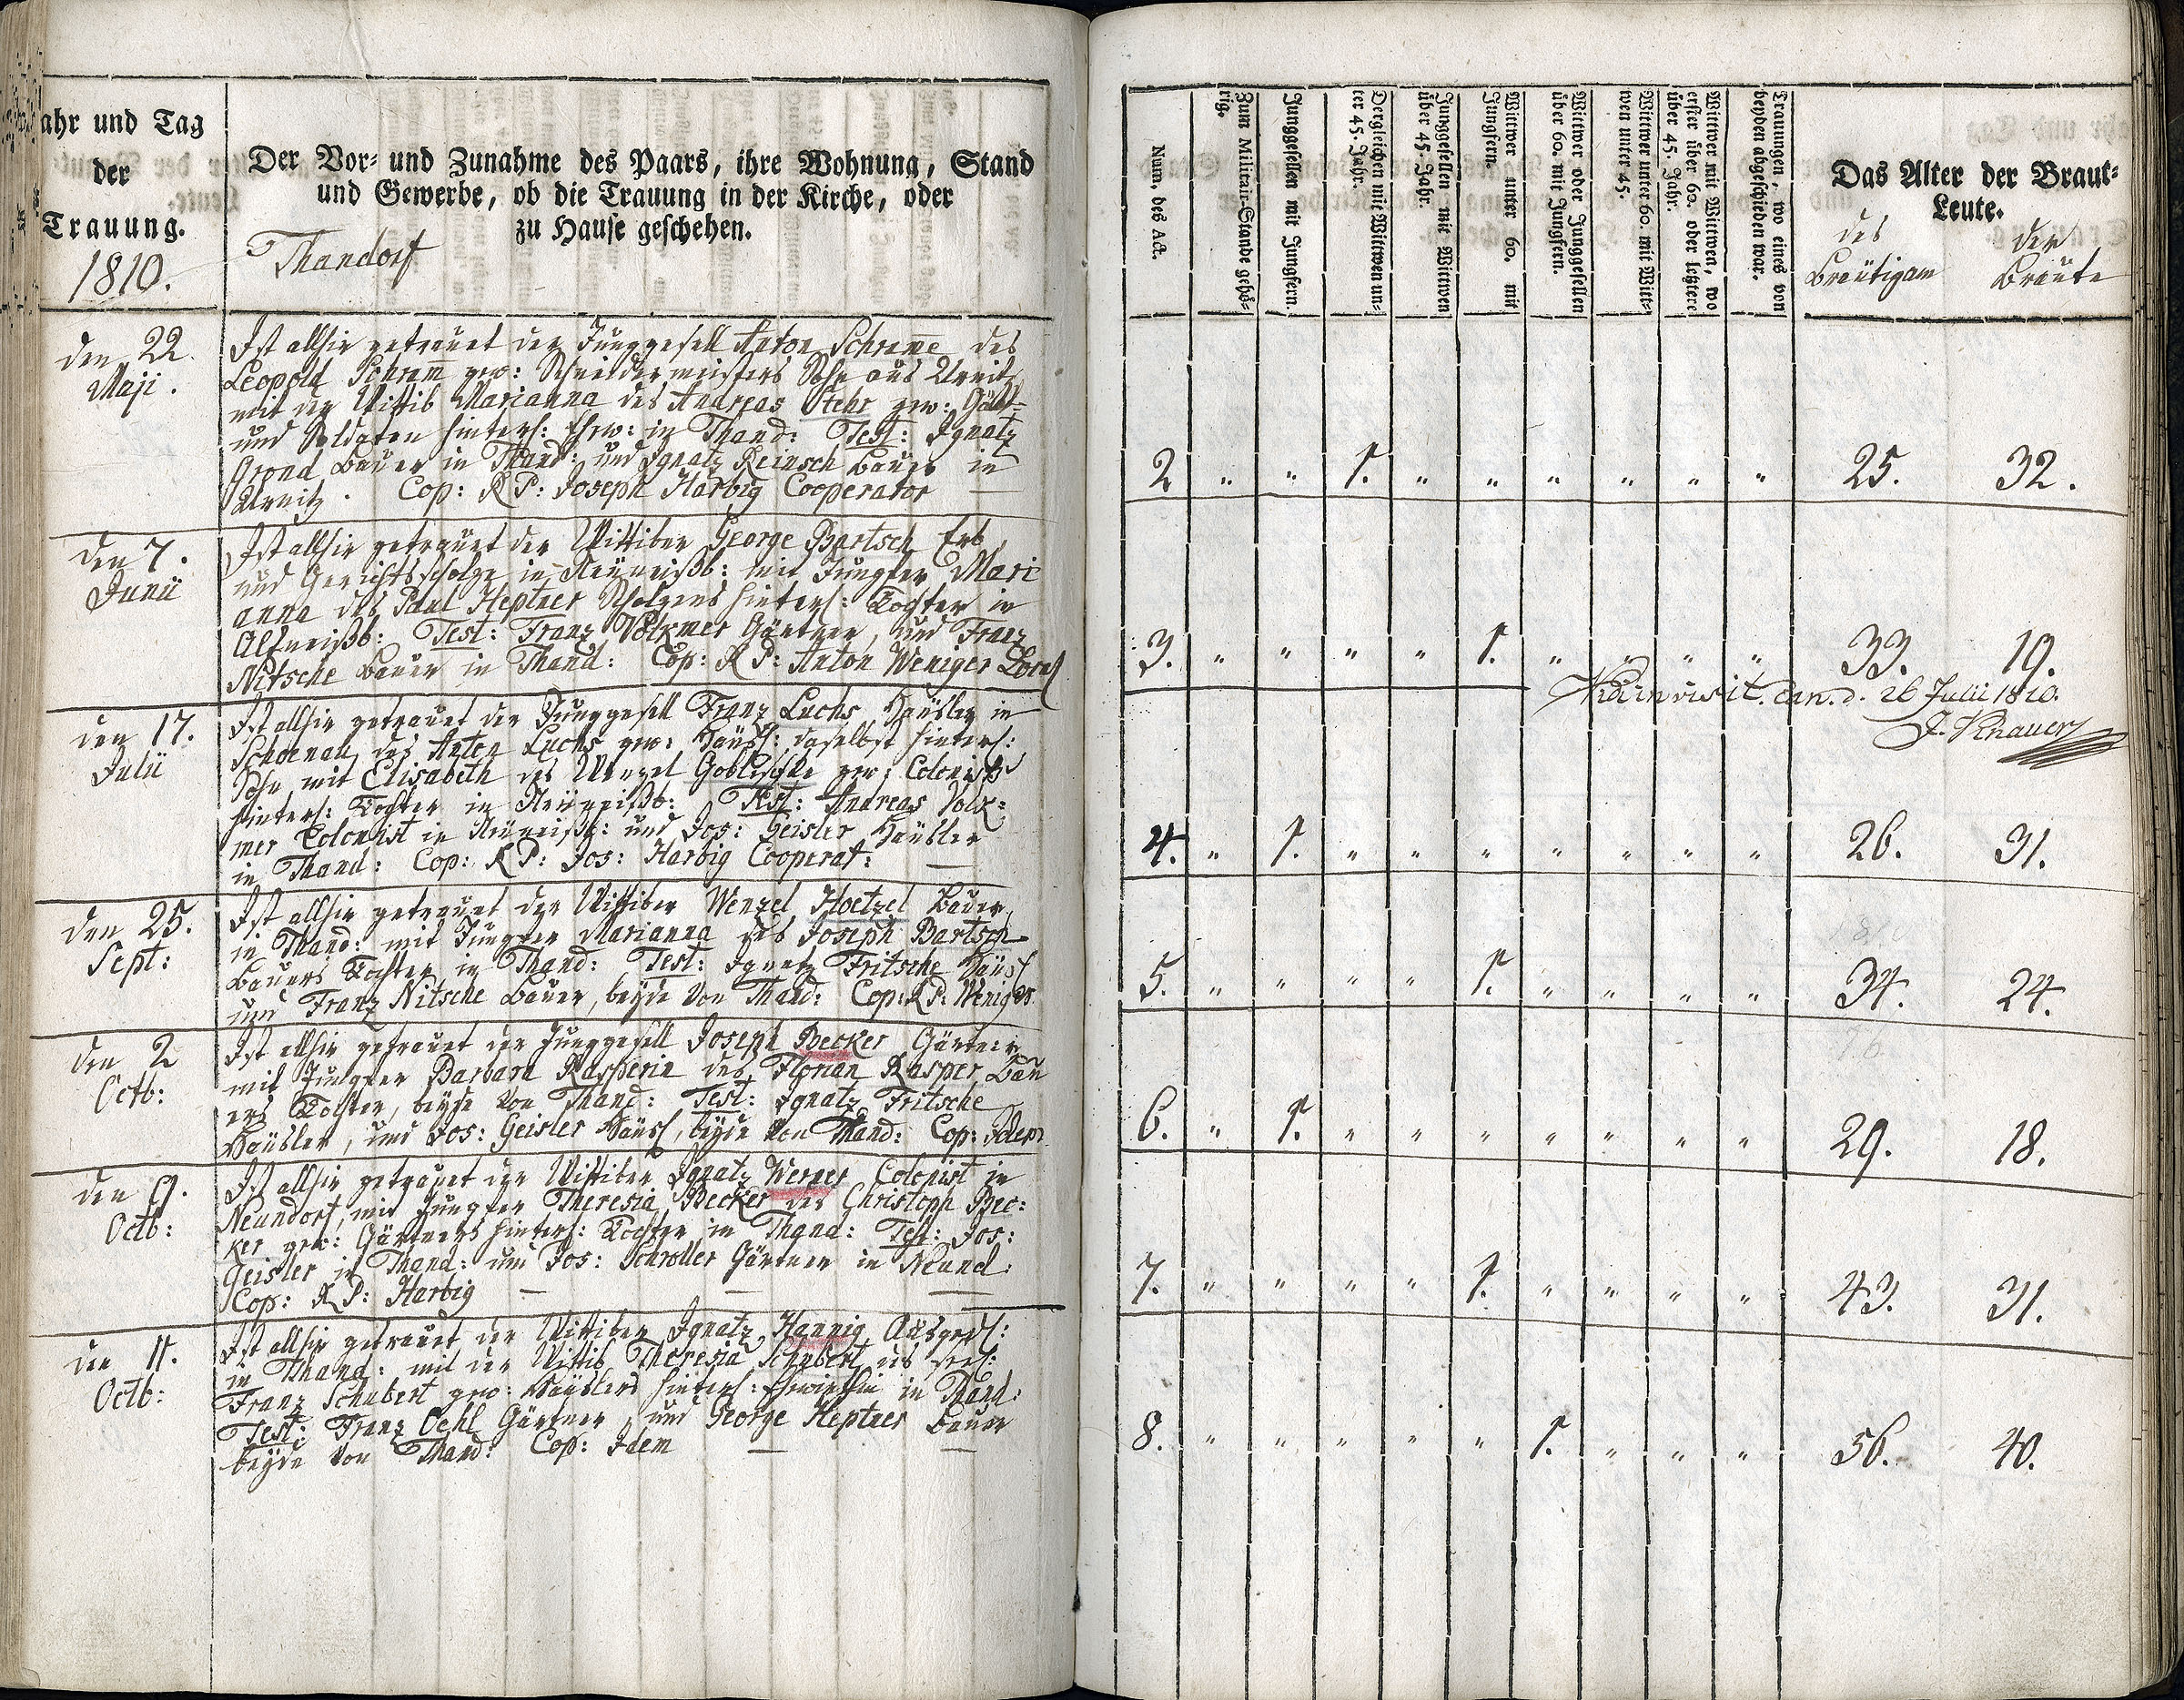 ahr und Tag
der
Trauung.
1810.
Der Vor- und Zunahme des Paars, ihre Wohnung, Stand
und Gewerbe, ob die Trauung in der Kirche, oder
zu Hause geschehen.
Thandorf
den 22.
Maji.
Ist allhie getrauet der Junggesell Anton Schram̄e des
Leopold Schram̄ gew: Schneidermeisters Sohn aus Urnitz
mit der Wittib Marianna des Andreas Stehr gew:
und Soldaten hinterl: Ehew: in Thand: Test: Ignatz
Grond Bauer in Thand: und Ignatz Reinsch Bauer in
Urnitz. Cop: R P: Joseph Harbig Cooperator —
den 7.
Junii
Ist allhie getrauet der Wittiber George Bartsch Erb
und Gerichtsscholze in Neüweißb: mit Jungfer Mari
anna des Paul Heptner Scholzens hinterl: Tochter in
Altweißb: Test: Franz Volkmer Gärtner, und Franz
Nitsche Bauer in Thand: Cop: R P: Anton Weniger
den 17.
Julii
Ist allhie getrauet der Junggesell Franz Luchs Häusler in
Schoenau des Anton Luchs gew: Häusl: daselbst hinterl:
Sohn mit Elisabeth des Wenzel Goblischke gew: Colonists
hinterl: Tochter in Neüweißb: Test: Andreas Volk=
mer Colonist in Neüweißb: und Jos: Geisler Häusler
in Thand: Cop: R P: Jos: Harbig Cooperat: —
den 25.
Sept:
Ist allhie getrauet der Wittiber Wenzel Hoetzel Bauer
in Thand: mit Jungfer Marianna des Joseph Bartsch
Bauers Tochter in Thand: Test: Ignatz Fritsche Häusl
und Franz Nitsche Bauer, beyde von Thand: Cop: R P: Weniger
den 2
Octb:
Ist allhie getrauet der Junggesell Joseph Becker Gärtner
mit Jungfer Barbara Kasperin des Florian Kasper Bau
ers Tochter, beyde von Thand: Test: Ignatz Fritsche
Häusler, und Jos: Geisler Häusl, beyde von Thand: Cop: Idem
den 9.
Octb:
Ist allhie getrauet der Wittiber Ignatz Werner Colonist in
Neundorf, mit Jungfer Theresia Becker des Christoph Bec=
ker gew: Gärtners hinterl: Tochter in Thand: Test: Jos:
Geisler in Thand: und Jos: Schroller Gärtner in Neund:
Cop: R P: Harbig — — —
den 11.
Octb:
Ist allhie getrauet der Wittiber Ignatz Hannig
in Thand: mit der Wittib Theresia Schubert des seel:
Franz Schubert gew: Häuslers hinterl: Ehewirthin in Thand:
Test: Franz Oehl Gärtner, und George Heptner Bauer
beyde von Thand: Cop: Idem — —
Num. des Act.
Zum Militair-Stande gehö-
rig.
Junggesellen mit Jungfern.
Dergleichen mit Wittwen un-
ter 45. Jahr.
Junggesellen mit Wittwen
über 45. Jahr.
Wittwer unter 60. mit
Jungfern.
Wittwer oder Junggesellen
über 60. mit Jungfern.
Wittwer unter 60. mit Witt-
wen unter 45.
Wittwer mit Wittwen, wo
erster über 60. oder letztere
über 45. Jahr.
Trauungen, wo eines von
beyden abgeschieden war.
Das Alter der Braut-
Leute.
des der
Bräutigam Bräute
2 " " 1. " " " " " " 25. 32.
3. " " " " 1. " " " " 33. 19.
visit. can. d. 26 Julii 1810.
J. Knauer
4. " 1. " " " " " " " 26. 31.
5. " " " " 1. " " " " 34. 24.
6. " 1. " " " " " " " 29. 18.
7. " " " " 1. " " " " 43. 31.
8. " " " " " 1. " " " 56. 40.